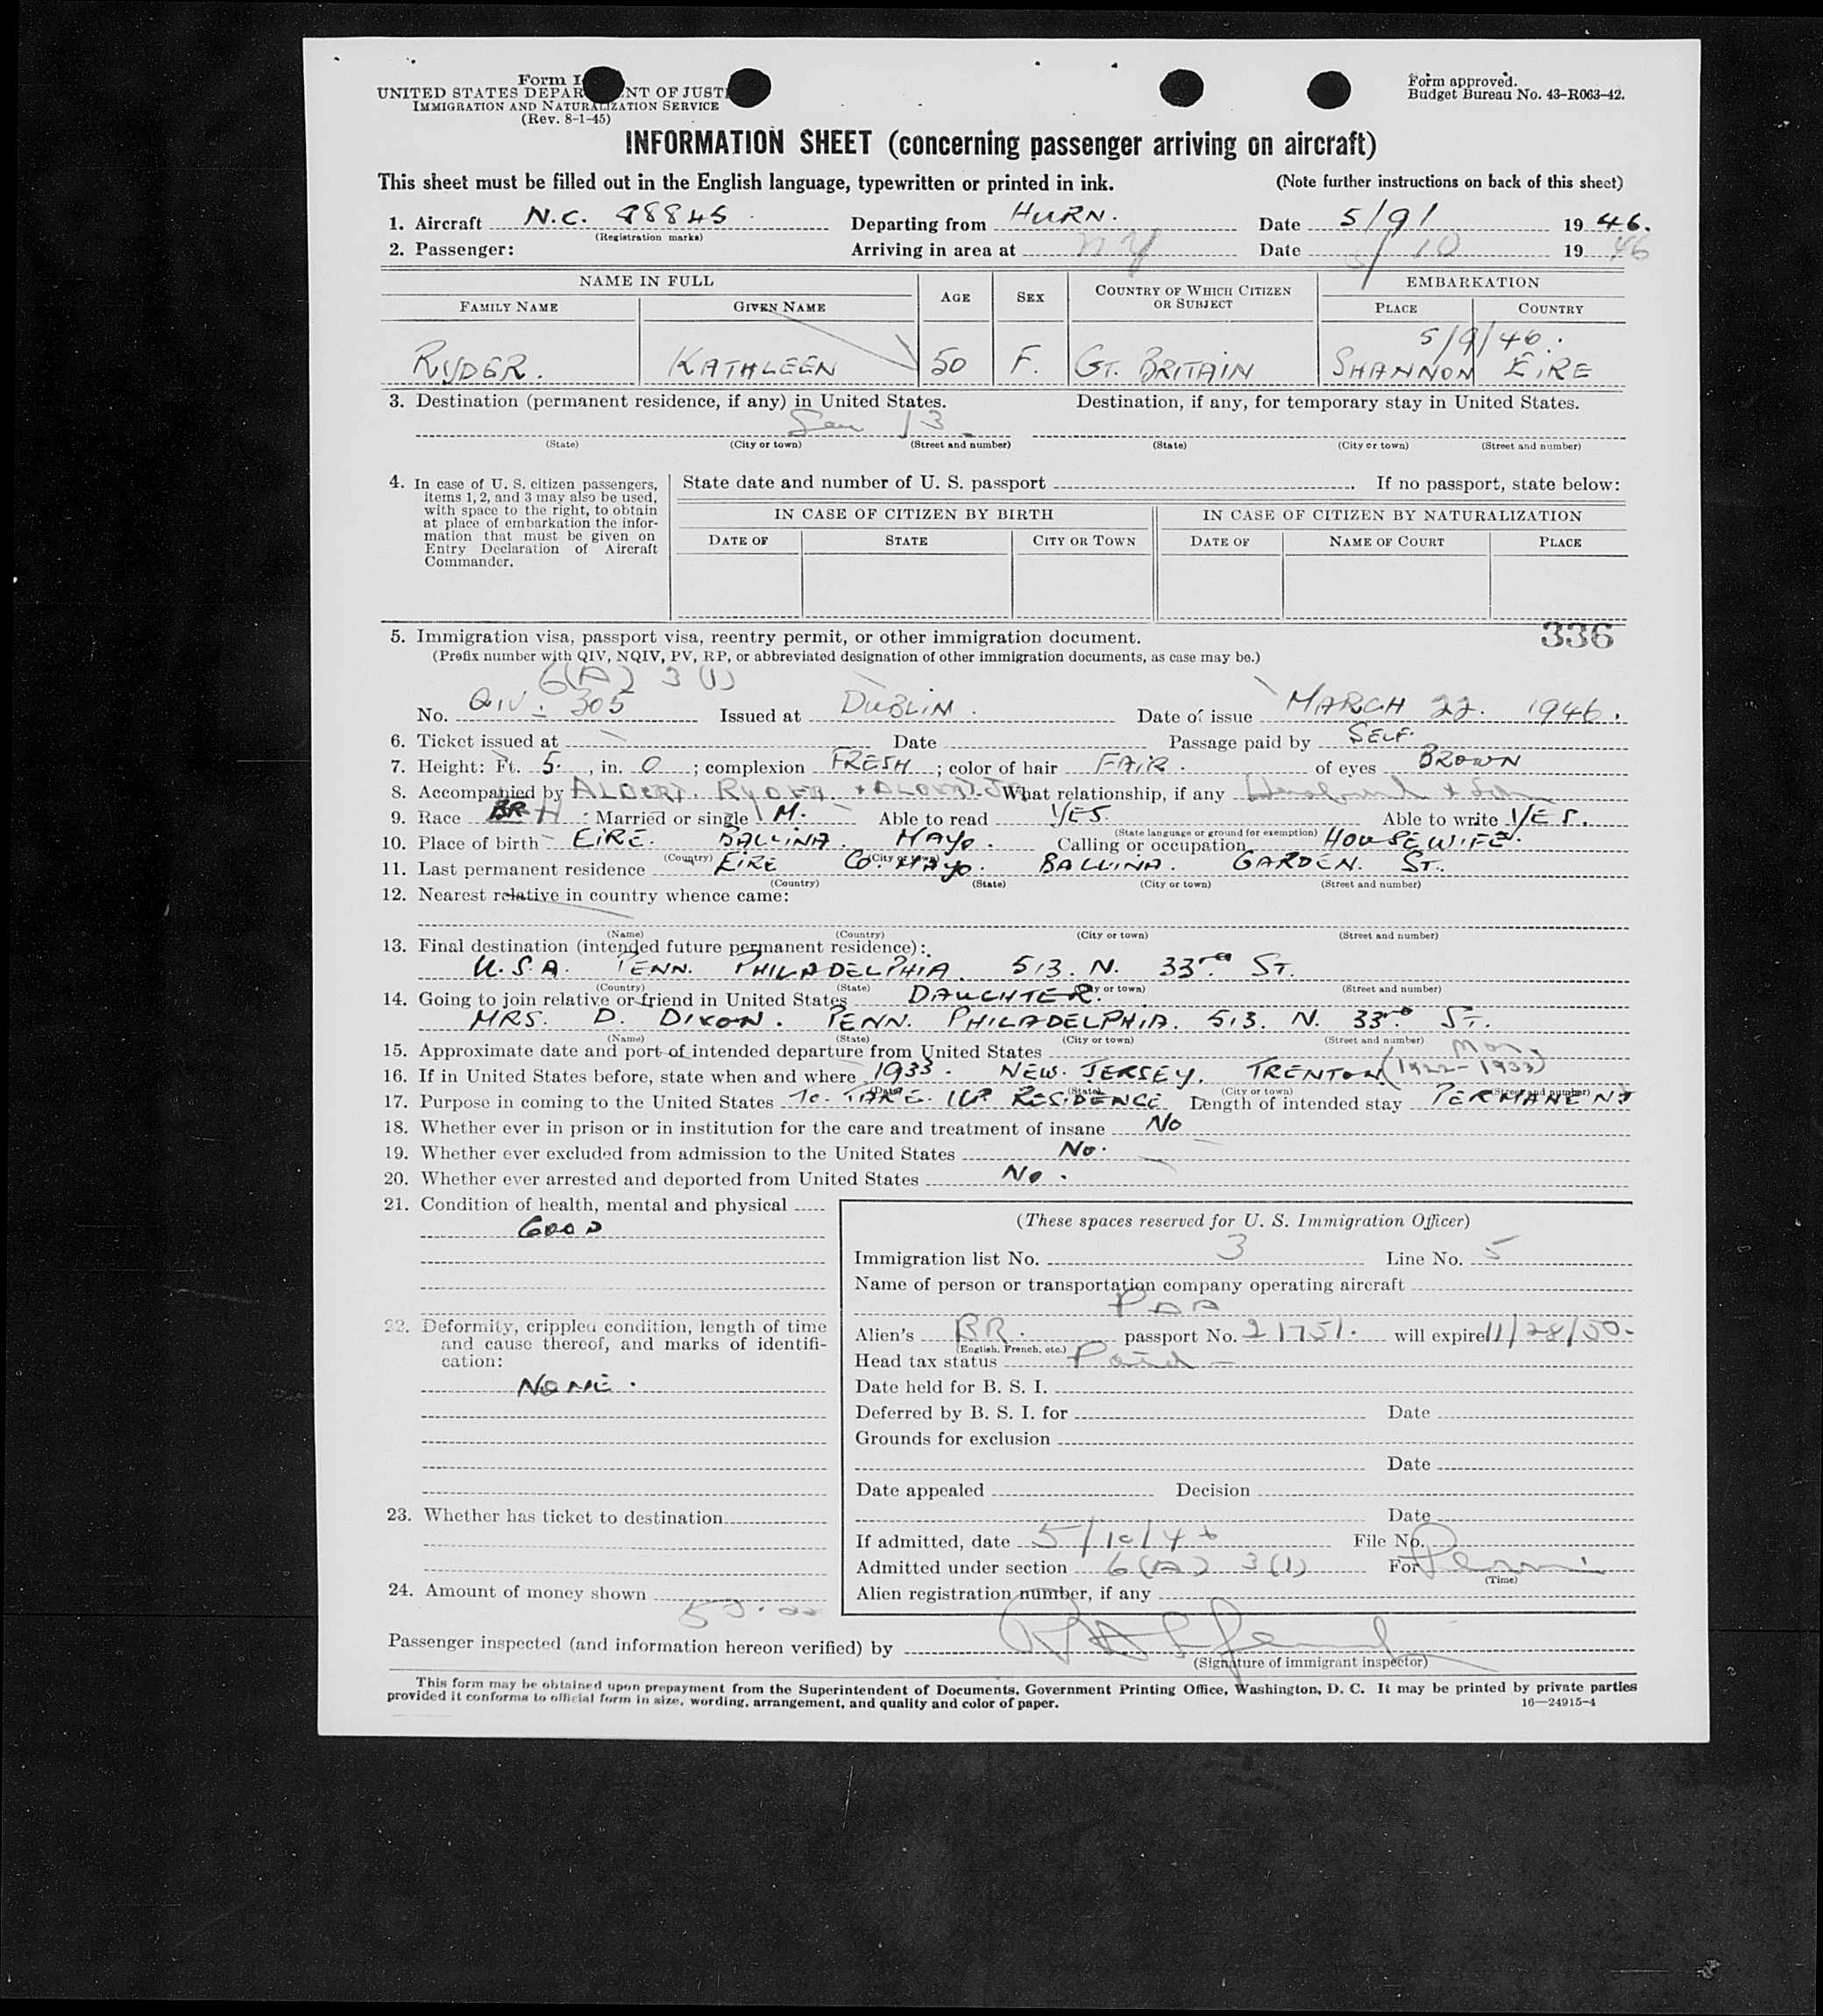 Form I
UNITED STATES DEPAR NT OF JUSTI
IMMIGRATION AND NATURALIZATION SERVICE
(Rev. 8-1-45)
Form approved.
Budget Bureau No. 43-R063-42.
INFORMATION SHEET (concerning passenger arriving on aircraft)
This sheet must be filled out in the English language, typewritten or printed in ink. (Note further instructions on back of this sheet)
1. Aircraft N.C. 88845 Departing from HURN. Date 5/9/ 19 46.
(Registration marks)
2. Passenger: Arriving in area at NY Date 5/10 19 46
NAME IN FULL AGE SEX COUNTRY OF WHICH CITIZEN OR SUBJECT EMBARKATION
FAMILY NAME GIVEN NAME PLACE COUNTRY
5/9/46.
RYDER. KATHLEEN 50 F. GT. BRITAIN SHANNON EIRE
3. Destination (permanent residence, if any) in United States. Destination, if any, for temporary stay in United States.
See 13
(State) (City or town) (Street and number) (State) (City or town) (Street and number)
4. In case of U. S. citizen passengers, items 1, 2, and 3 may also be used, with space to the right, to obtain at place of embarkation the information that must be given on Entry Declaration of Aircraft Commander.
State date and number of U. S. passport . If no passport, state below:
IN CASE OF CITIZEN BY BIRTH IN CASE OF CITIZEN BY NATURALIZATION
DATE OF STATE CITY OR TOWN DATE OF NAME OF COURT PLACE
336
5. Immigration visa, passport visa, reentry permit, or other immigration document.
(Prefix number with QIV, NQIV, PV, RP, or abbreviated designation of other immigration documents, as case may be.)
6(A) 3(1)
No. QIV - 305 Issued at DUBLIN. Date of issue MARCH 22. 1946.
6. Ticket issued at Date Passage paid by SELF.
7. Height: Ft. 5. , in. 0 ; complexion FRESH ; color of hair FAIR. of eyes BROWN
8. Accompanied by ALBERT. RYDER + ALBERT JR What relationship, if any Husband + Son
9. Race BR Married or single M. Able to read YES. Able to write YES.
(State language or ground for exemption)
10. Place of birth EIRE. BALLINA. MAYO. Calling or occupation HOUSEWIFE.
(Country) (City or town)
11. Last permanent residence EIRE CO. MAYO. BALLINA. GARDEN. ST.
(Country) (State) (City or town) (Street and number)
12. Nearest relative in country whence came:
(Name) (Country) (City or town) (Street and number)
13. Final destination (intended future permanent residence):
U.S.A. PENN. PHILADELPHIA. 513. N. 33rd ST.
(Country) (State) (City or town) (Street and number)
14. Going to join relative or friend in United States DAUGHTER.
MRS. D. DIXON. PENN. PHILADELPHIA. 513. N. 33rd ST.
(Name) (State) (City or town) (Street and number)
15. Approximate date and port of intended departure from United States
16. If in United States before, state when and where 1933. NEW. JERSEY. TRENTON (1922-1933)
(Date) (State) (City or town) (Street and number)
17. Purpose in coming to the United States TO. TAKE. UP. RESIDENCE Length of intended stay PERMANENT
18. Whether ever in prison or in institution for the care and treatment of insane NO
19. Whether ever excluded from admission to the United States NO.
20. Whether ever arrested and deported from United States NO.
21. Condition of health, mental and physical
GOOD
22. Deformity, crippled condition, length of time and cause thereof, and marks of identification:
NONE.
23. Whether has ticket to destination
24. Amount of money shown 50.00
(These spaces reserved for U. S. Immigration Officer)
Immigration list No. 3 Line No. 5
Name of person or transportation company operating aircraft
PAA
Alien's BR. passport No. 21751. will expire 11/28/50.
(English, French, etc.)
Head tax status Paid -
Date held for B. S. I.
Deferred by B. S. I. for Date
Grounds for exclusion
Date
Date appealed Decision
Date
If admitted, date 5/10/46 File No.
Admitted under section 6(A) 3(1) For Perm.
(Time)
Alien registration number, if any
Passenger inspected (and information hereon verified) by
(Signature of immigrant inspector)
This form may be obtained upon prepayment from the Superintendent of Documents, Government Printing Office, Washington, D. C. It may be printed by private parties
provided it conforms to official form in size, wording, arrangement, and quality and color of paper. 16—24915-4